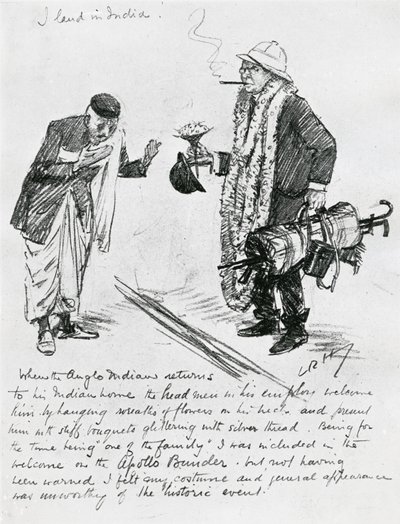 I land in India.
LRH
When the Anglo Indian returns
to his Indian home the head men in his employ welcome
him by hanging wreaths of flowers on his neck. and present
him with stiff bouquets glittering with silver thread. Being for
the time being "one of the family" I was included in the
welcome on the Apollo Bunder. but not having
been warned I felt my costume and general appearance
was unworthy of the historic event.